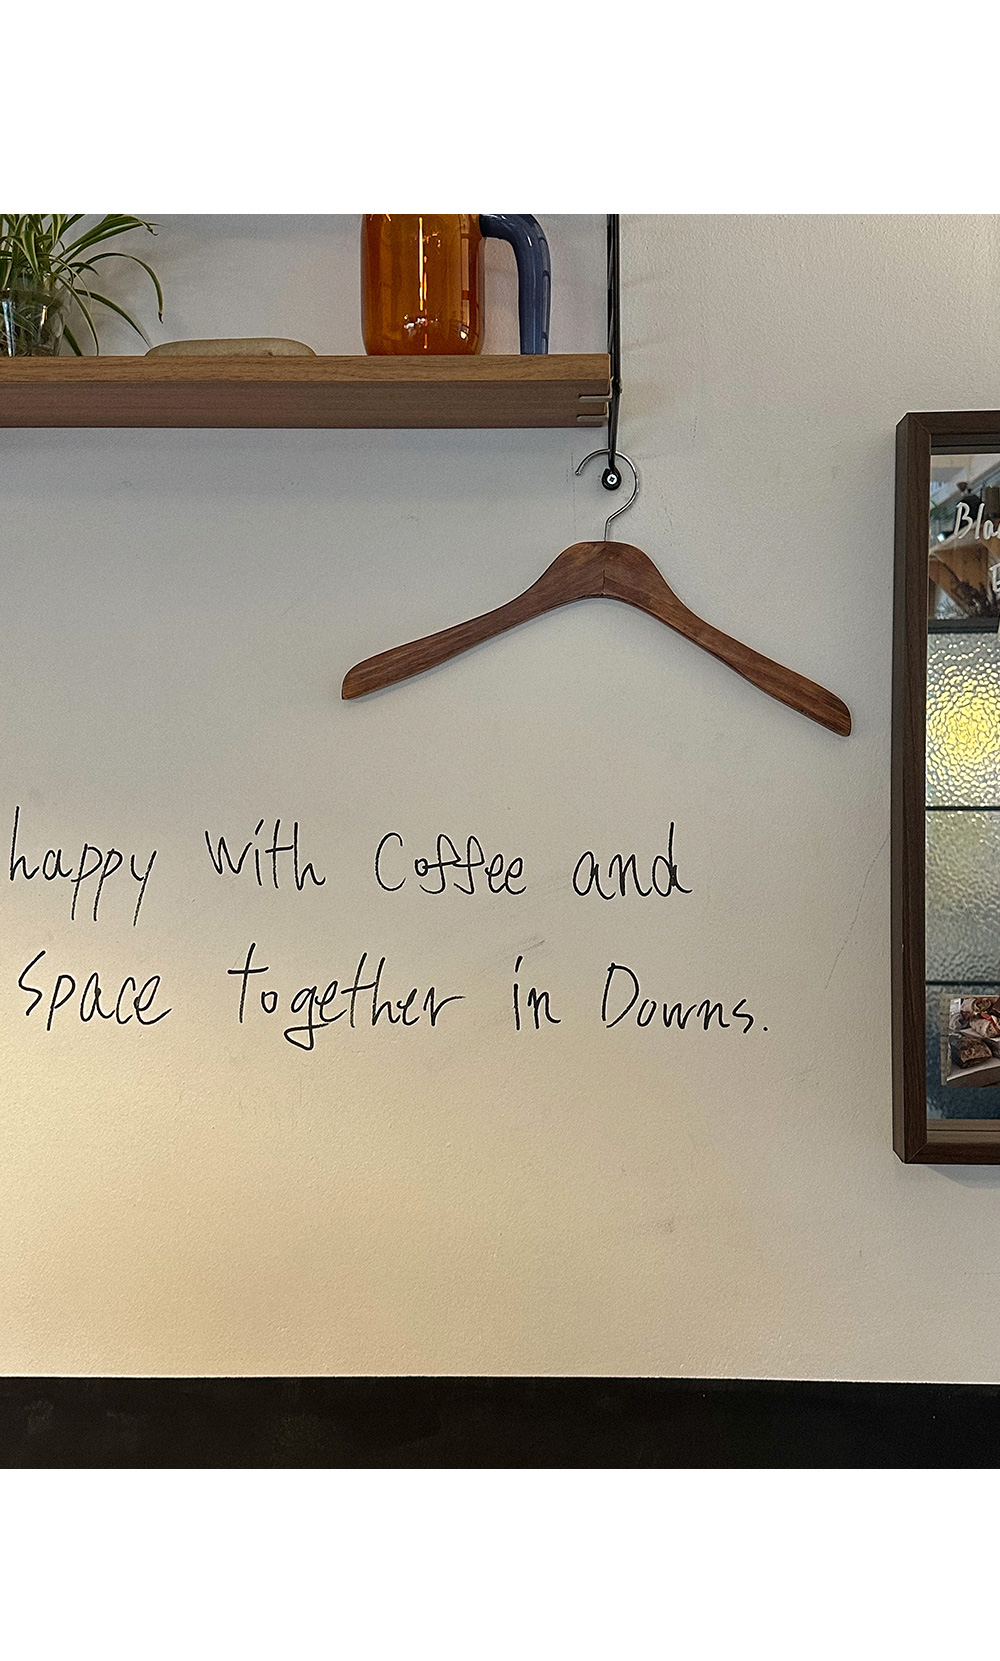 happy with Coffee and
space together in Downs.